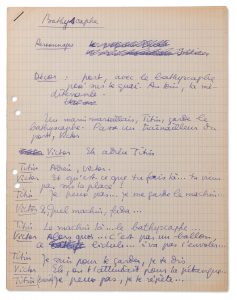 Bathyscaphe
Personnages
Décor : port, avec le bathyscaphe
posé sur le quai. Au loin, la mé-
diterranée.
Un marin marseillais, Titin, garde le
bathyscaphe. Passe un travailleur du
port, Victor
Victor Eh adieu Titin
Titin Adieu, Victor.
Victor Et qu'est-ce que tu fais là... Tu viens
pas sur la place !
Titin Je peux pas, je me garde le machin...
Victor Quel machin, fada...
Titin Le machin là... le bathyscaphe...
Victor Alors quoi... C'est pas un ballon,
il va pas s'envoler...
Titin Je suis pour le garder, je te dis
Victor Eh, on t'attendait pour la pétanque...
Titin je peux pas, je te répète...